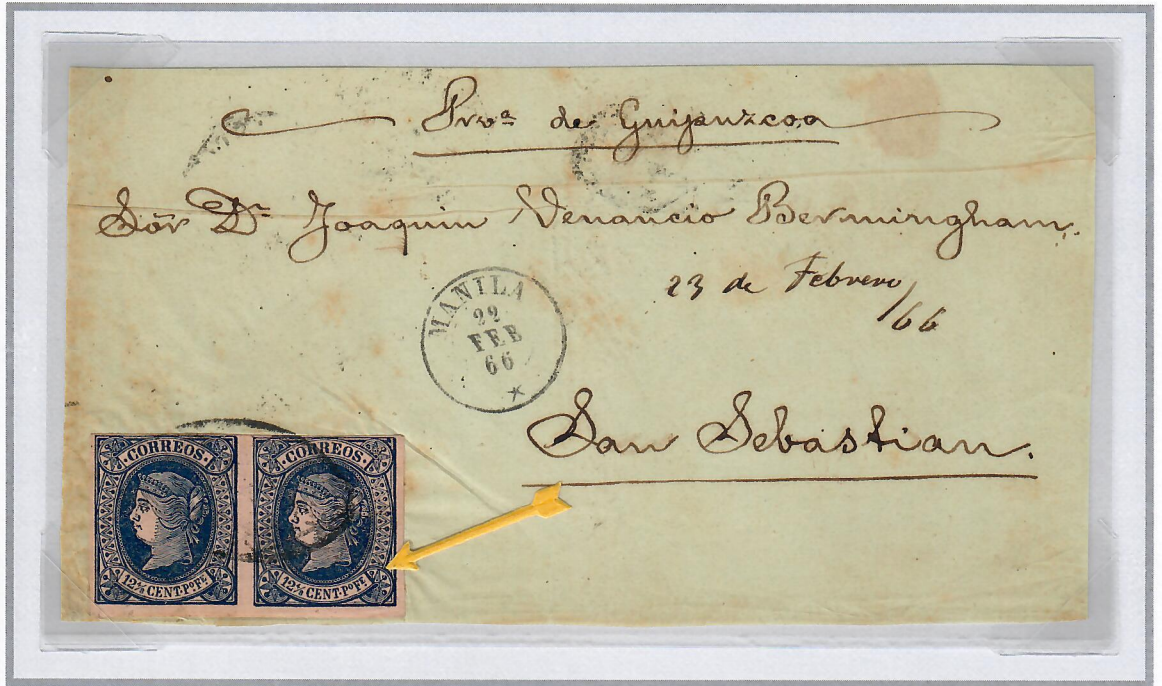 Prov.ª de Guipuzcoa
Sōr Dⁿ Joaquin Venancio Bermingham.
23 de Febrero/66
MANILA
22
FEB
66
San Sebastian.
CORREOS
12 4/8 CENT. Pº Fe
CORREOS
12 4/8 CENT. Pº Fe